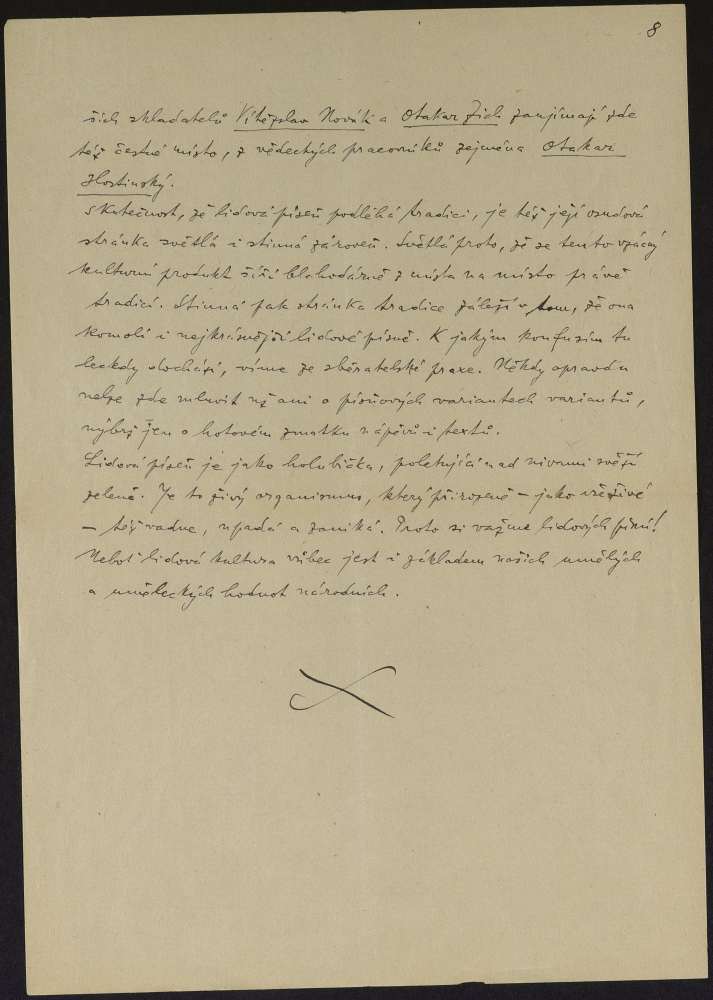 8
ších skladatelů Vítězslav Novák a Otakar Zich zaujímají zde
též čestné místo, z vědeckých pracovníků zejména Otakar
Hostinský.
Skutečnost, že lidová píseň podléhá tradici, je též její osudová
stránka světlá i stinná zároveň. Světlá proto, že se tento vzácný
kulturní produkt šíří blahodárně z místa na místo právě
tradicí. Stinná pak stránka tradice záleží v tom, že ona
komolí i nejkrásnější lidové písně. K jakým konfusím tu
leckdy dochází, víme ze sběratelské praxe. Někdy opravdu
nelze zde mluvit už ani o písňových variantech variantů,
nýbrž jen o hotovém zmatku nápěvů i textů.
Lidová píseň je jako holubička, poletující nad nivami svěží
zeleně. Je to živý organismus, který přirozeně – jako vše živé
– též vadne, upadá a zaniká. Proto si važme lidových písní!
Neboť lidová kultura vůbec jest i základem našich umělých
a uměleckých hodnot národních.